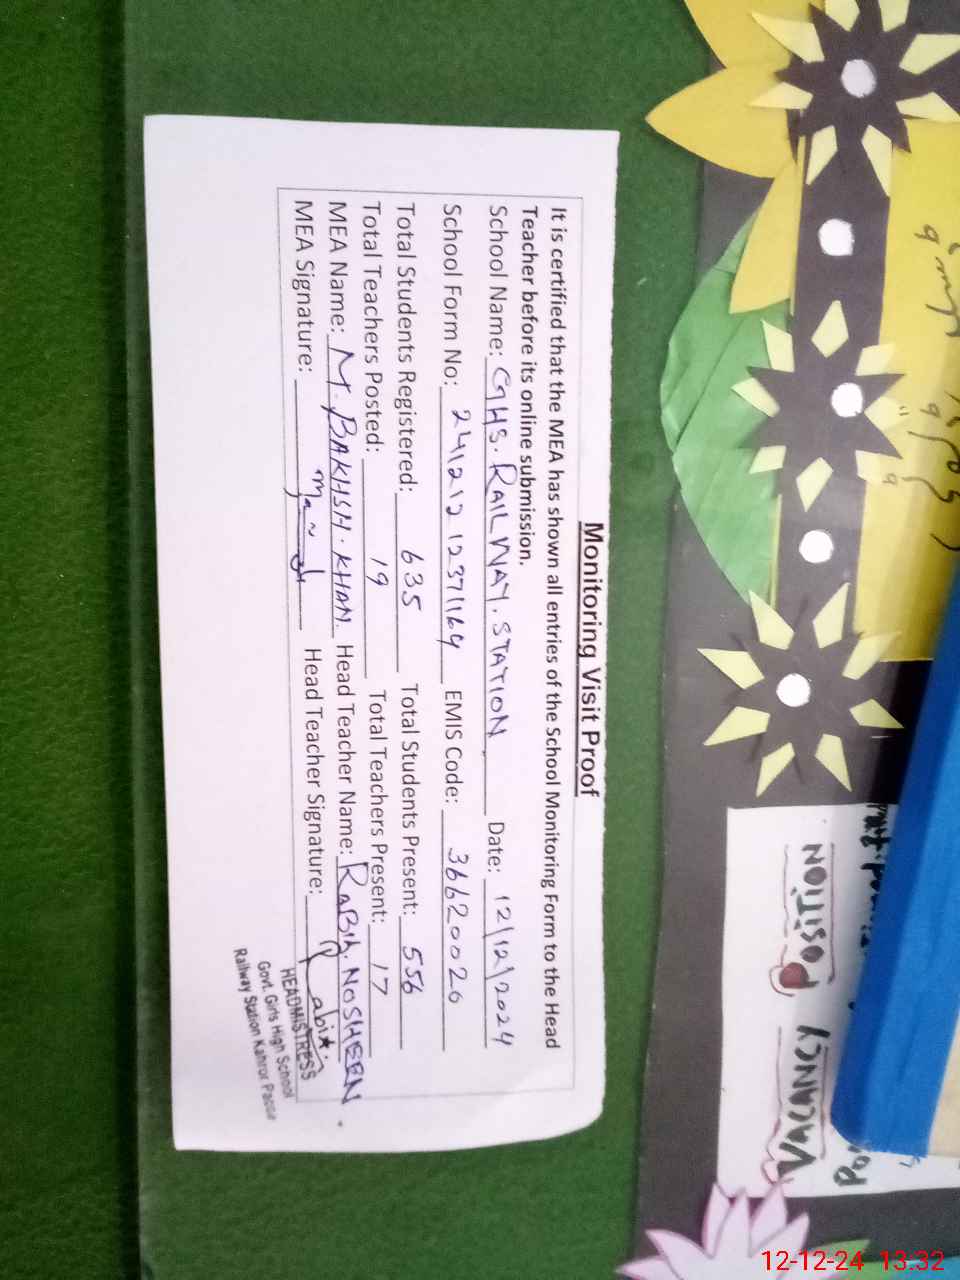 Monitoring Visit Proof
It is certified that the MEA has shown all entries of the School Monitoring Form to the Head
Teacher before its online submission.
School Name: GHS. RAILWAY. STATION Date: 12/12/2024
School Form No: 24121212371164 EMIS Code: 36620020
Total Students Registered: 635 Total Students Present: 556
Total Teachers Posted: 19 Total Teachers Present: 17
MEA Name: M. BAKHSH. KHAN. Head Teacher Name: RABIA. NOSHEEN
MEA Signature: Head Teacher Signature: Rabia
HEADMISTRESS
Govt. Girls High School
Railway Station Kahror Pacca
VACANCY POSITION
12-12-24 13:32